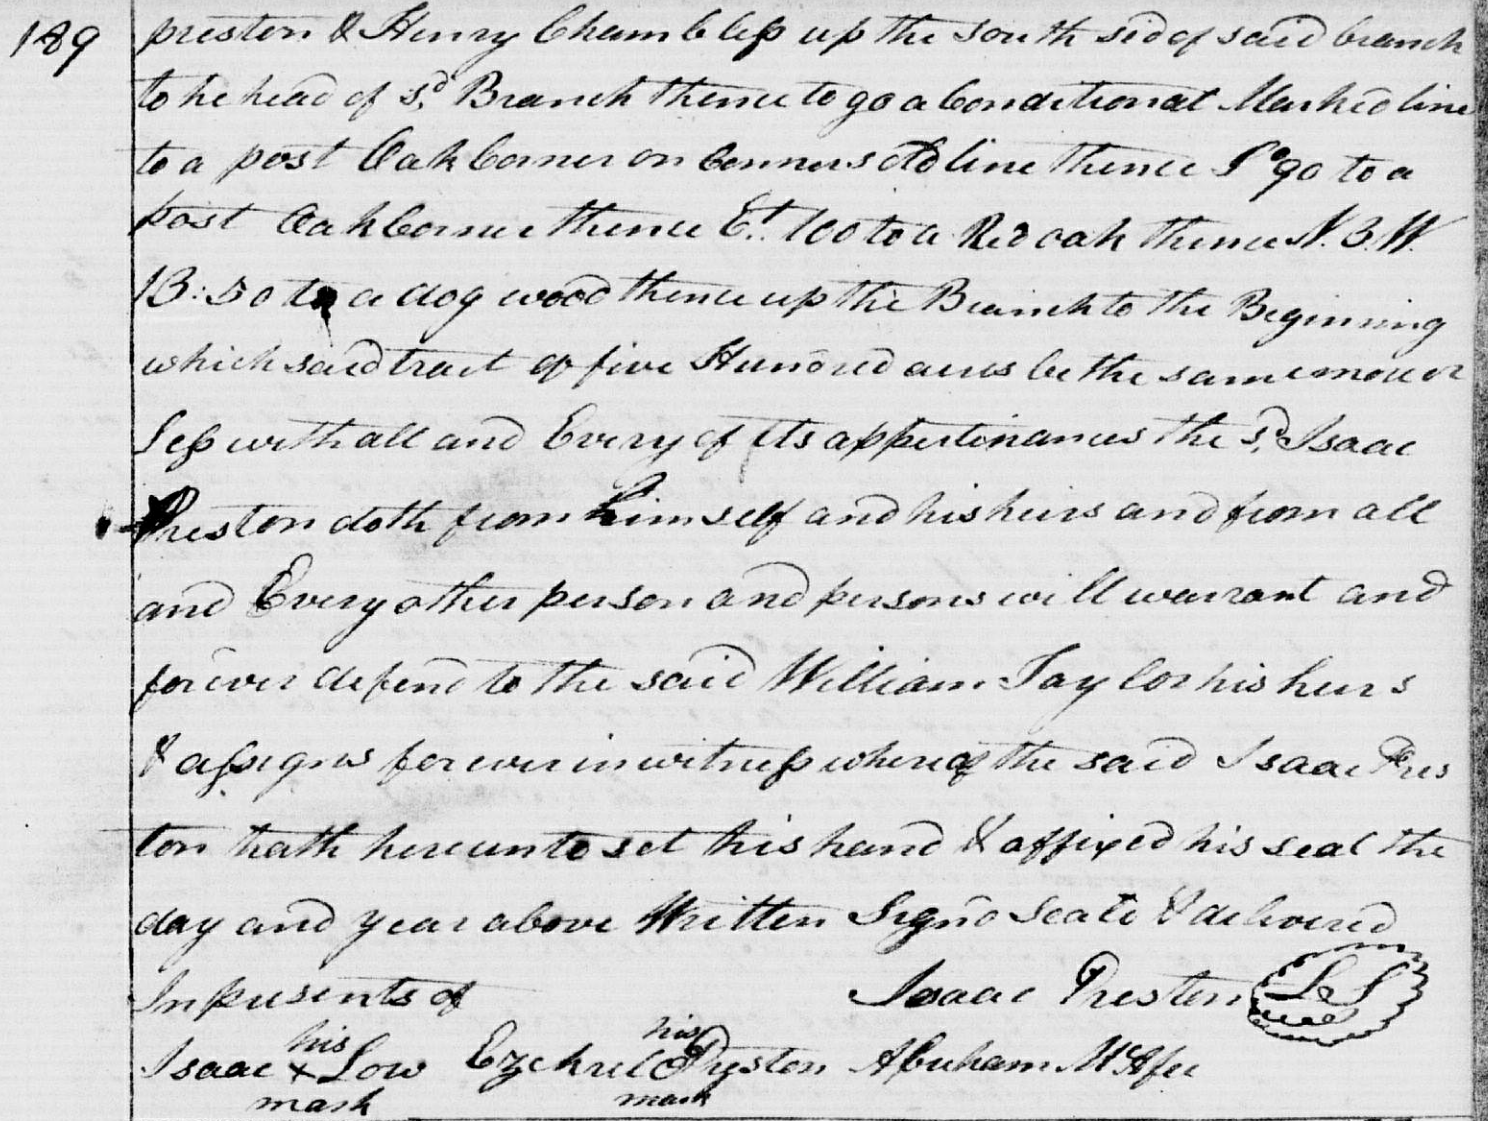 189
preston & Henry Chambless up the south sid of said branch
to he head of sd. Branch thence to go a Conditional Marked line
to a post Oak Corner on Conners old line thence So 90 to a
post Oak Corner thence Et. 100 to a Red oak thence N. 3. W.
13:50 to a dog wood thence up the Branch to the Beginning
which said tract of five Hundred acres be the same more or
Less with all and Every of its appertinances the sd. Isaac
Preston doth from himself and his heirs and from all
and Every other person and persons will warrant and
forever defend to the said William Taylor his heirs
& assigns forever in witness whereof the said Isaac Pres
ton hath hereunto set his hand & affixed his seal the
day and year above Written Signd Seald & delivered
In presents of Isaac Preston LS
his his
Isaac x Low Ezekiel Pryston Abraham McAfee
mark mark